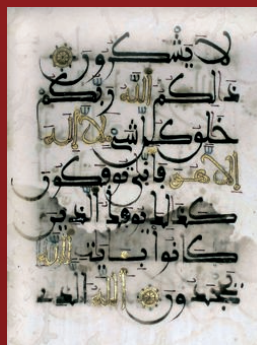 لا يشكرون
ذلكم الله ربكم
خلق كل شى لا إله
إلا هو فأنى تؤفكون
كذلك يؤفك الذين
كانوا بايت الله
يجحدون الله الذى